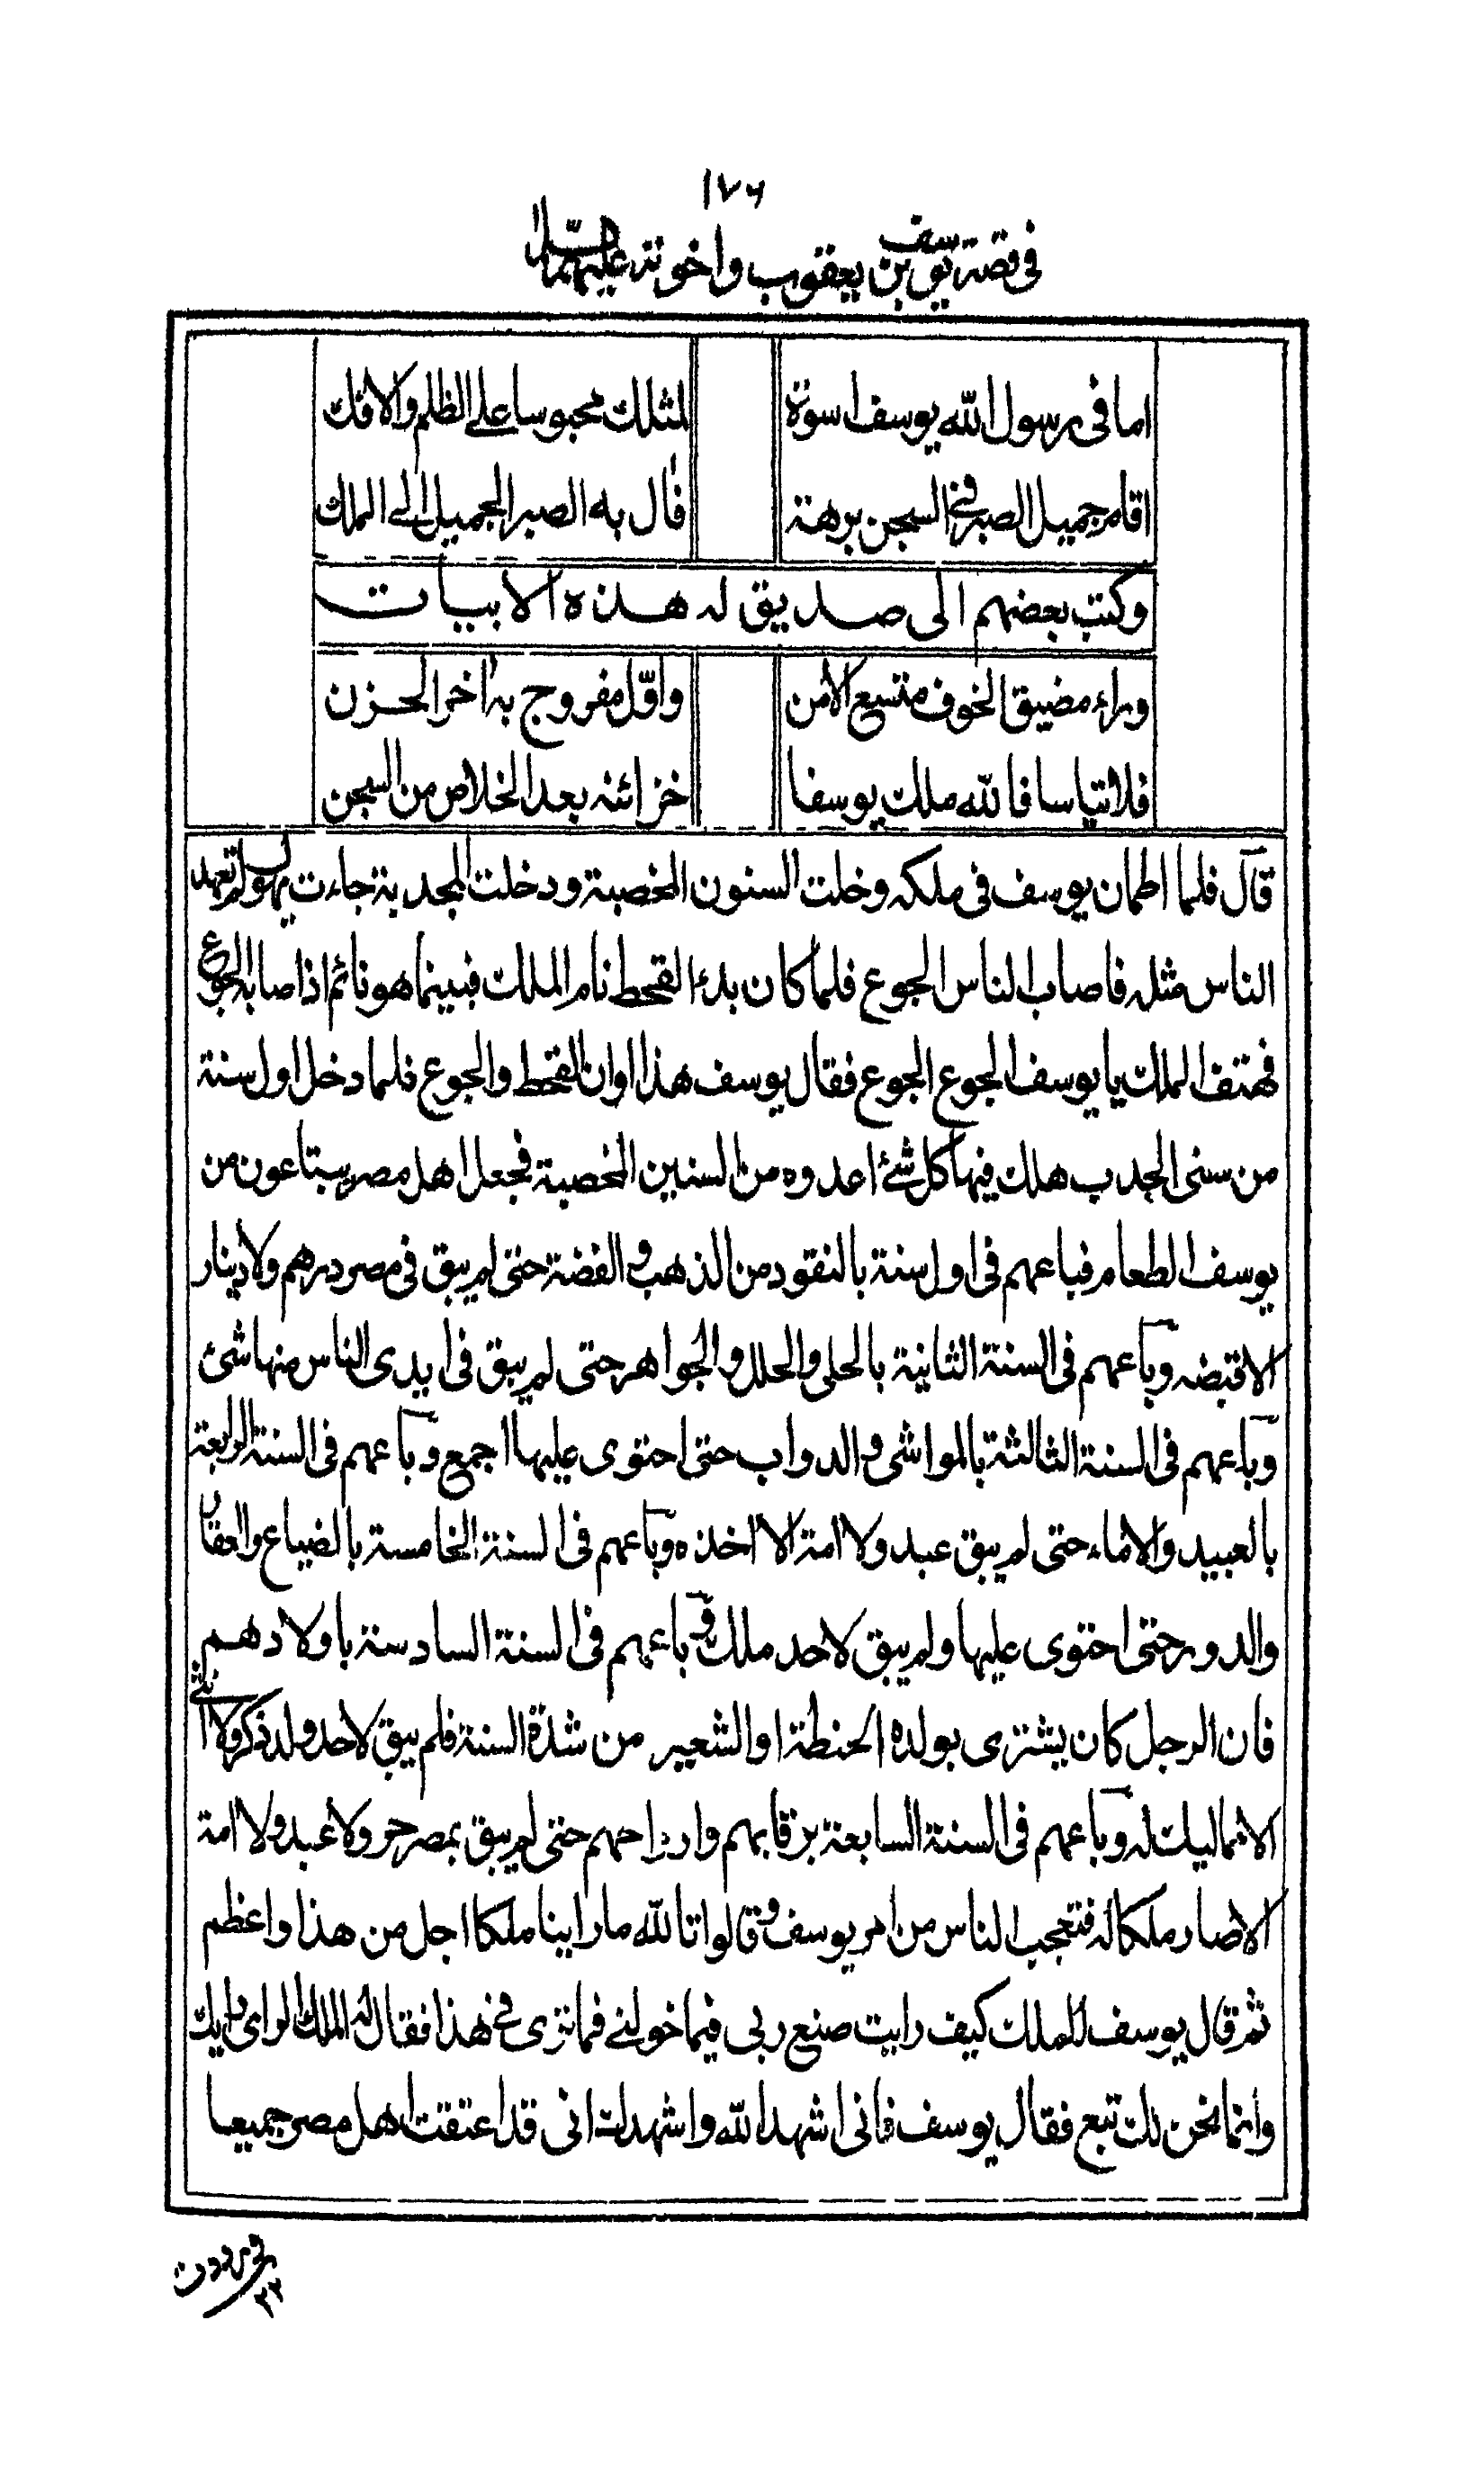 ١٧٦
فى قصة يوسف بن يعقوب واخوته عليهم السلام
اما فى رسول الله يوسف اسوة لمثلك محبوسا على الظلم والافك
اقام جميل الصبر فى السجن برهة فآل به الصبر الجميل الى الملك
وكتب بعضهم الى صديق له هذه الابيات
وراء مضيق الخوف متسع الامن واوّل مفروج به اخر الحزن
فلا تيأسا فالله ملك يوسفا خزائنه بعد الخلاص من السجن
قال فلما اطمان يوسف فى ملكه وخلت السنون المخصبة ودخلت المجدبة جاءت بهول لم تعهد
الناس مثله فاصاب الناس الجوع فلما كان بدء القحط نام الملك فبينما هو نائم اذ اصابه الجوع
فهتف الملك يا يوسف الجوع الجوع فقال يوسف هذا اوان القحط والجوع فلما دخل اول سنة
من سنى الجدب هلك فيها كل شئ اعدوه من السنين المخصبة فجعل اهل مصر يبتاعون من
يوسف الطعام فباعهم فى اول سنة بالنقود من الذهب والفضة حتى لم يبق فى مصر درهم ولا دينار
الا قبضه وباعهم فى السنة الثانية بالحلى والحلل والجواهر حتى لم يبق فى ايدى الناس منها شئ
وباعهم فى السنة الثالثة بالمواشى والدواب حتى احتوى عليها اجمع وباعهم فى السنة الرابعة
بالعبيد والاماء حتى لم يبق عبد ولا امة الا اخذه وباعهم فى السنة الخامسة بالضياع والعقار
والدور حتى احتوى عليها ولم يبق لاحد ملك وباعهم فى السنة السادسة باولادهم
فان الرجل كان يشترى بولده الحنطة او الشعير من شدة السنة فلم يبق لاحد ولد ذكر ولا انثى
الا مماليك له وباعهم فى السنة السابعة برقابهم وارواحهم حتى لم يبق بمصر حر ولا عبد ولا امة
الا صار ملكا له فتعجب الناس من امر يوسف وقالوا تالله ما راينا ملكا اجل من هذا واعظم
ثم قال يوسف للملك كيف رايت صنع ربى فيما خولنى فما ترى فى هذا فقال له الملك الراى رايك
وانما نحن لك تبع فقال يوسف فانى اشهد الله واشهدك انى قد اعتقت اهل مصر جميعا